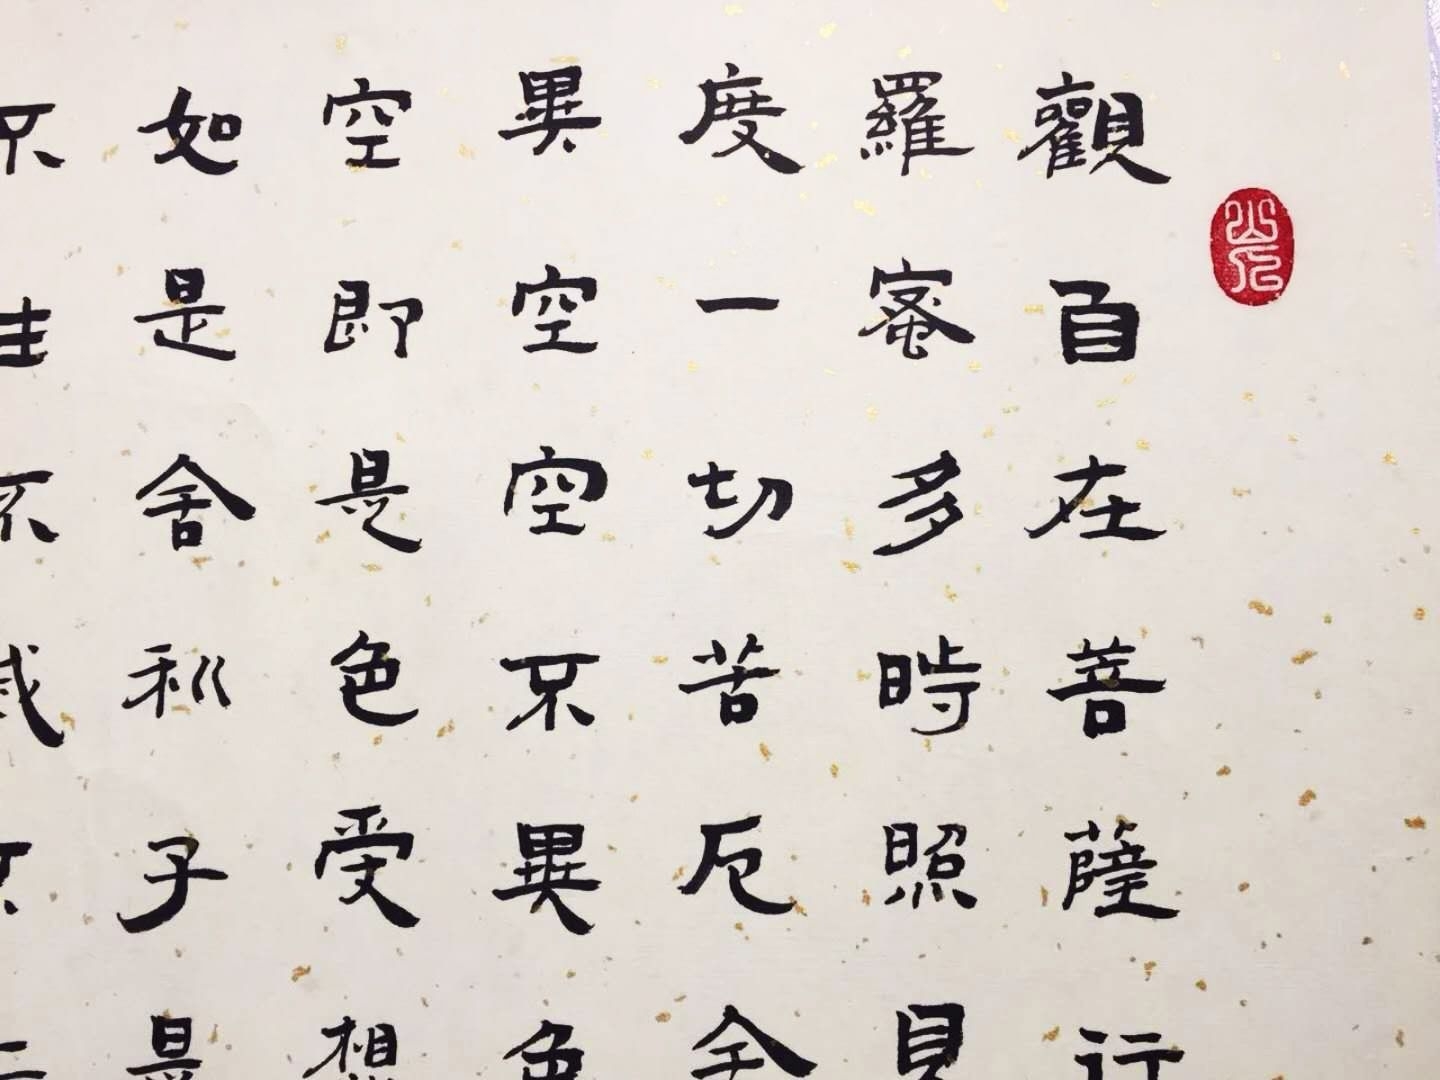 觀自在菩薩行
羅蜜多時照見
度一切苦厄舍
異空空不異色
空即是色受想
如是舍利子是
不生不滅不